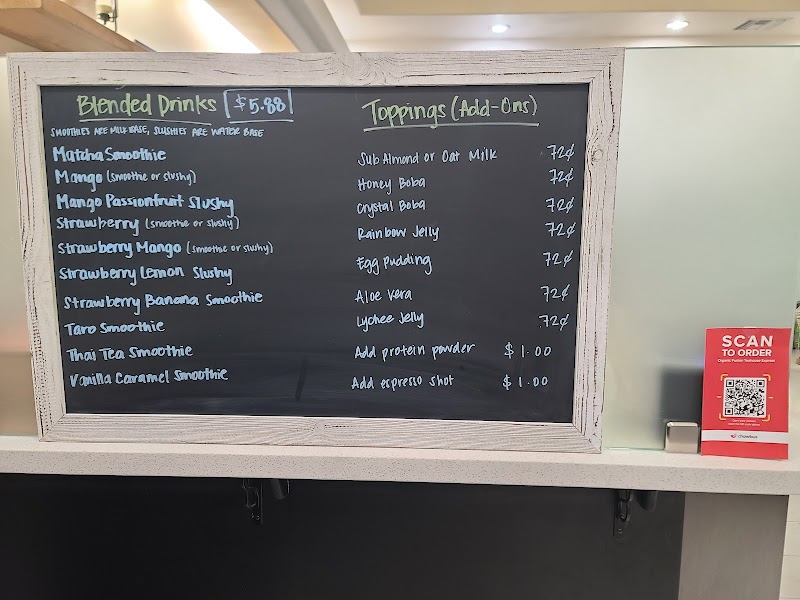 Blended Drinks $5.88
SMOOTHIES ARE MILK BASE, SLUSHIES ARE WATER BASE
Matcha Smoothie
Mango (smoothie or slushy)
Mango Passionfruit Slushy
Strawberry (smoothie or slushy)
Strawberry Mango (smoothie or slushy)
Strawberry Lemon Slushy
Strawberry Banana Smoothie
Taro Smoothie
Thai Tea Smoothie
Vanilla Caramel Smoothie
Toppings (Add-Ons)
Sub Almond or Oat Milk 72¢
Honey Boba 72¢
Crystal Boba 72¢
Rainbow Jelly 72¢
Egg Pudding 72¢
Aloe Vera 72¢
Lychee Jelly 72¢
Add protein powder $1.00
Add espresso shot $1.00
SCAN
TO ORDER
Organic Fusion Teahouse Express
chowbus